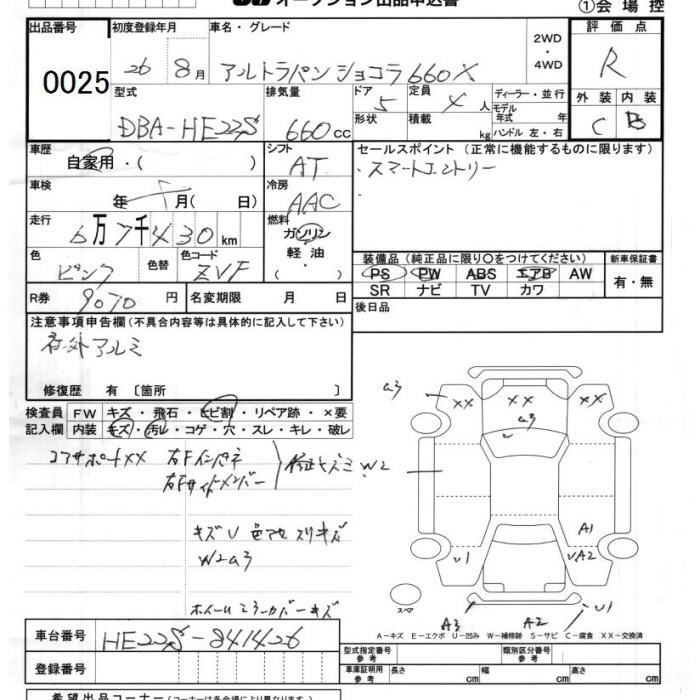 オークション出品申込書
①会場控
出品番号 初度登録年月 車名・グレード 2WD・4WD 評価点
0025 26 8月 アルトラパンショコラ660X R
型式 排気量 ドア 5 定員 4人 ディーラー・並行 外装 内装
DBA-HE22S 660cc 形状 積載 kg モデル年式 年 ハンドル 左・右 C B
車歴 シフト セールスポイント (正常に機能するものに限ります)
自家用・( ) AT ・スマートエントリー
車検 冷房 ・
年 月( 日) AAC
走行 燃料
6万7千430km ガソリン
色 色替 色コード 軽油 装備品 (純正品に限り○をつけてください) 新車保証書
ピンク ZVF ・( ) PS PW ABS エアB AW 有・無
R券 9070円 名変期限 月 日 SR ナビ TV カワ
注意事項申告欄(不具合内容等は具体的に記入して下さい) 後日品
社外アルミ
修復歴 有 〔箇所 〕
検査員 FW キズ・飛石・ヒビ割・リペア跡・×要
記入欄 内装 キズ・汚レ・コゲ・穴・スレ・キレ・破レ
コアサポートXX 右Fインパネ 修正キズミ W2
右Fサイドメンバー
キズU 色アセ スリキズ
W2 a3
ホイールミラーカバーキズ
a3 XX XX XX
a3
A1
U1 UA2
スペア
A3 A2 U1
A-キズ E-エクボ U-凹み W-補修跡 S-サビ C-腐食 XX-交換済
車台番号 HE22S-841426
型式指定番号 参考 類別区分番号 参考
登録番号 車庫証明用 参考 長さ cm 幅 cm 高さ cm
希望出品コーナー(コーナーは各会場により異なります)